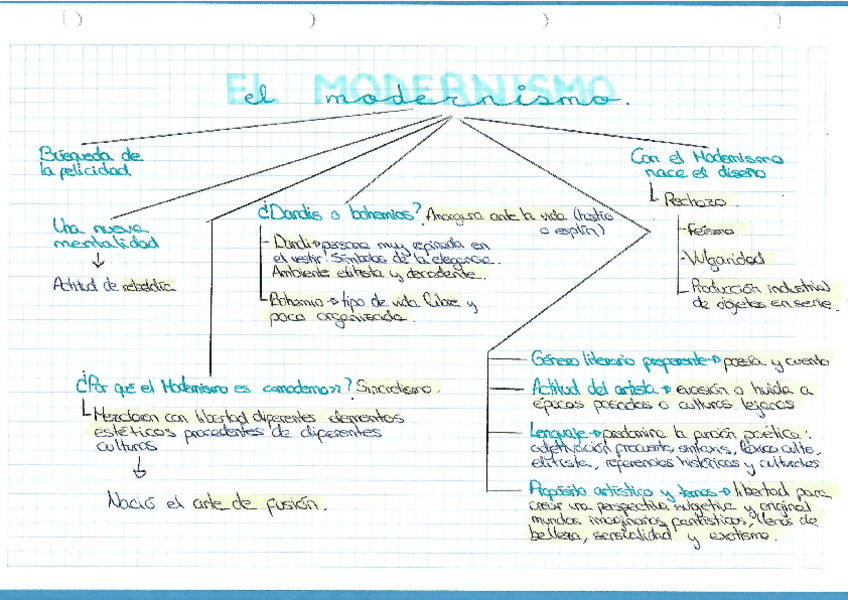 EL MODERNISMO
el modernismo.
Búsqueda de
la felicidad.
Con el Modernismo
nace el diseño
Rechazo
Feísmo
Vulgaridad
Producción industrial
de objetos en serie.
Una nueva
mentalidad
Actitud de rebeldía.
¿Dandis o bohemios? Amargura ante la vida (hastío
o esplín)
Dandi→persona muy refinada en
el vestir. Símbolos de la elegancia.
Ambiente elitista y decadente.
Bohemio→tipo de vida libre y
poco organizada.
¿Por qué el Modernismo es «moderno»? Sincretismo.
Mezclaron con libertad diferentes elementos
estéticos procedentes de diferentes
culturas
Nació el arte de fusión.
Género literario preferente→poesía y cuento
Actitud del artista→evasión o huida a
épocas pasadas o culturas lejanas
Lenguaje→predomina la función poética:
adjetivación frecuente, sintaxis, léxico culto,
elitista, referencias históricas y culturales
Propósito artístico y temas→libertad para
crear una perspectiva subjetiva y original
mundos imaginarios, fantásticos, llenos de
belleza, sensualidad y exotismo.